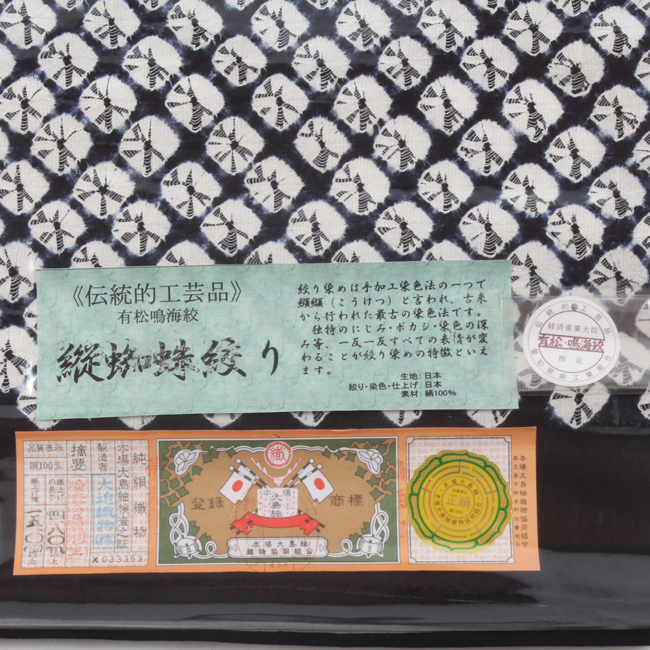 《伝統的工芸品》
有松鳴海絞
縦蜘蛛絞り
絞り染めは手加工染色法の一つで
纐纈(こうけつ)と言われ、古来
から行われた最古の染色法です。
独特のにじみ・ボカシ・染色の深
み等、一反一反すべての表情が変
わることが絞り染めの特徴といえ
ます。
生地:日本
絞り・染色・仕上げ:日本
素材:絹100%
経済産業大臣
有松・鳴海絞
指定
純絹織物
本場大島紬検査之証
製造者
摘要
品質表示
絹100%
X033353
織
登録
商標
本場
大島紬
本場大島紬
織物協同組合
正絹